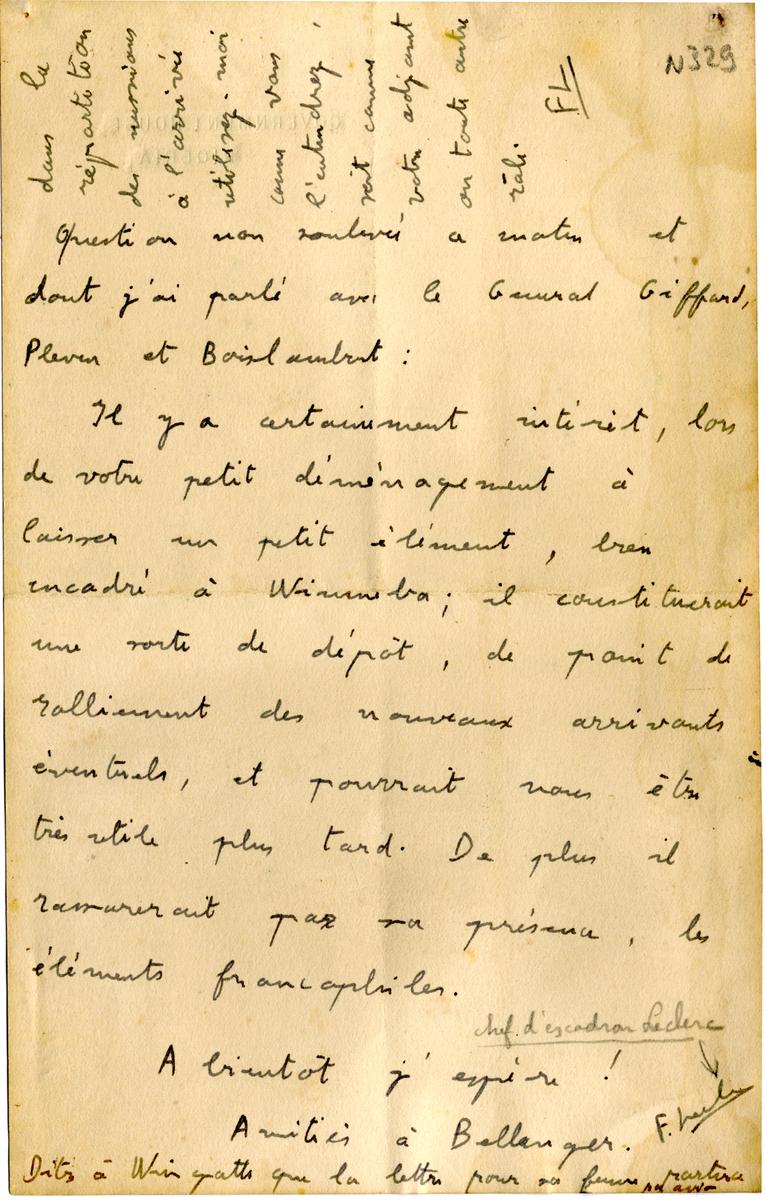 N329
Question non soulevée ce matin et
dont j'ai parlé avec le General Giffard,
Pleven et Boislambert :
Il y a certainement intérêt, lors
de votre petit déménagement à
laisser un petit élément, bien
encadré à Winneba ; il constituerait
une sorte de dépôt, de point de
ralliement des nouveaux arrivants
éventuels, et pourrait nous être
très utile plus tard. De plus il
rassurerait par sa présence, les
éléments francophiles.
A bientôt j'espère !
Amitiés à Bellanger.
chef d'escadron Leclerc
F. Leclerc
Dites à Wingatts que la lettre pour sa femme partira
par avion
dans la
répartition
des missions
à l'arrivée
utilisez-moi
comme vous
l'entendrez,
soit comme
votre adjoint
ou toute autre
FL